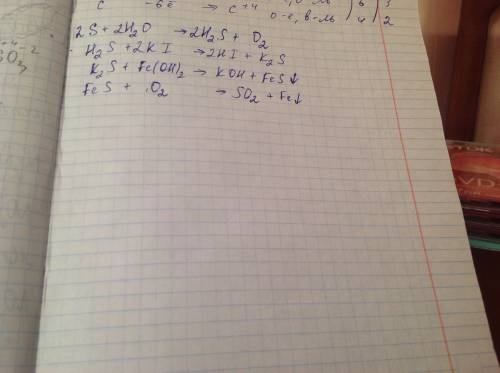 c -6e → c+4 6 3
о-е, в-ль 4 2
2S + 2H₂O → 2H₂S + O₂
H₂S + 2KI → 2HI + K₂S
K₂S + Fe(OH)₂ → KOH + FeS↓
FeS + O₂ → SO₂ + Fe↓